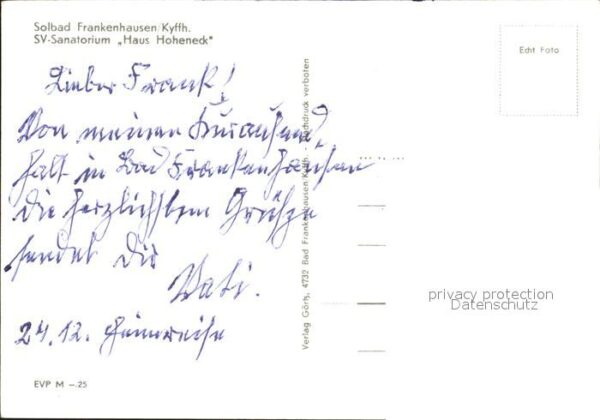 Solbad Frankenhausen/Kyffh.
SV-Sanatorium „Haus Hoheneck"
Echt Foto
Lieber Frank!
Von meinen Kuraufent,
halt in Bad Frankenhausen
die herzlichsten Grüße
sendet Dir
Vati.
24.12. Heimreise
Verlag Görtz, 4732 Bad Frankenhausen/Kyffh. Nachdruck verboten
privacy protection
Datenschutz
EVP M –.25